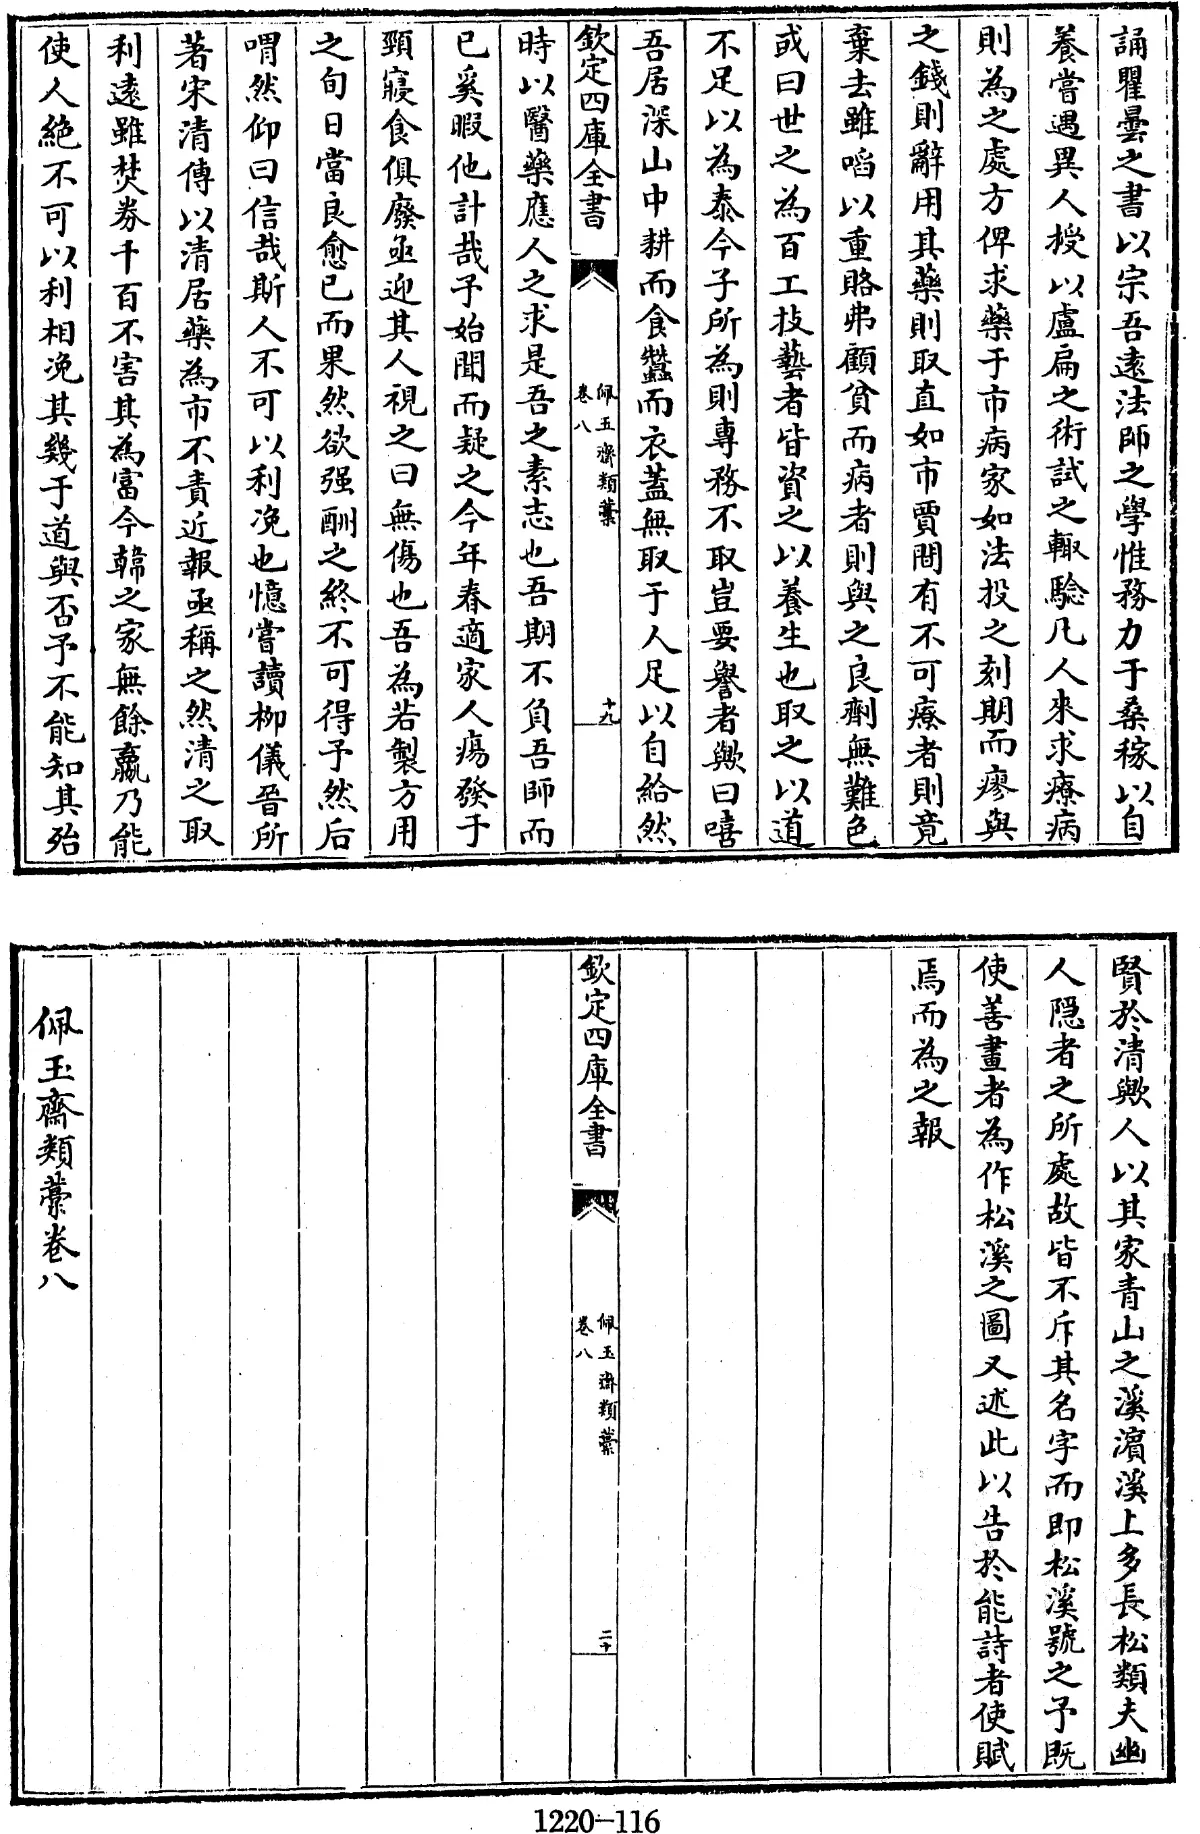 誦瞿曇之書以宗吾遠法師之學惟務力于桑稼以自
養嘗遇異人授以盧扁之術試之輙驗凡人來求療病
則為之處方俾求藥于市病家如法投之刻期而瘳與
之錢則辭用其藥則取直如市賈間有不可療者則竟
棄去雖啗以重賂弗顧貧而病者則與之良劑無難色
或曰世之為百工技藝者皆資之以養生也取之以道
不足以為泰今子所為則專務不取豈要譽者歟曰嘻
吾居深山中耕而食蠶而衣蓋無取于人足以自給然
欽定四庫全書
佩玉齋類藁
卷八
十九
時以醫藥應人之求是吾之素志也吾期不負吾師而
已奚暇他計哉予始聞而疑之今年春適家人瘍發于
頸寢食俱廢亟迎其人視之曰無傷也吾為若製方用
之旬日當良愈已而果然欲强酬之終不可得予然后
喟然仰曰信哉斯人不可以利凂也憶嘗讀柳儀晉所
著宋清傳以清居藥為市不責近報亟稱之然清之取
利遠雖焚券千百不害其為富今韓之家無餘贏乃能
使人絶不可以利相凂其幾于道與否予不能知其殆
賢於清歟人以其家青山之溪濵溪上多長松類夫幽
人隠者之所處故皆不斥其名字而即松溪號之予既
使善畫者為作松溪之圖又述此以告於能詩者使賦
焉而為之報
欽定四庫全書
佩玉齋類藁
卷八
二十
佩玉齋類藁卷八
1220-116